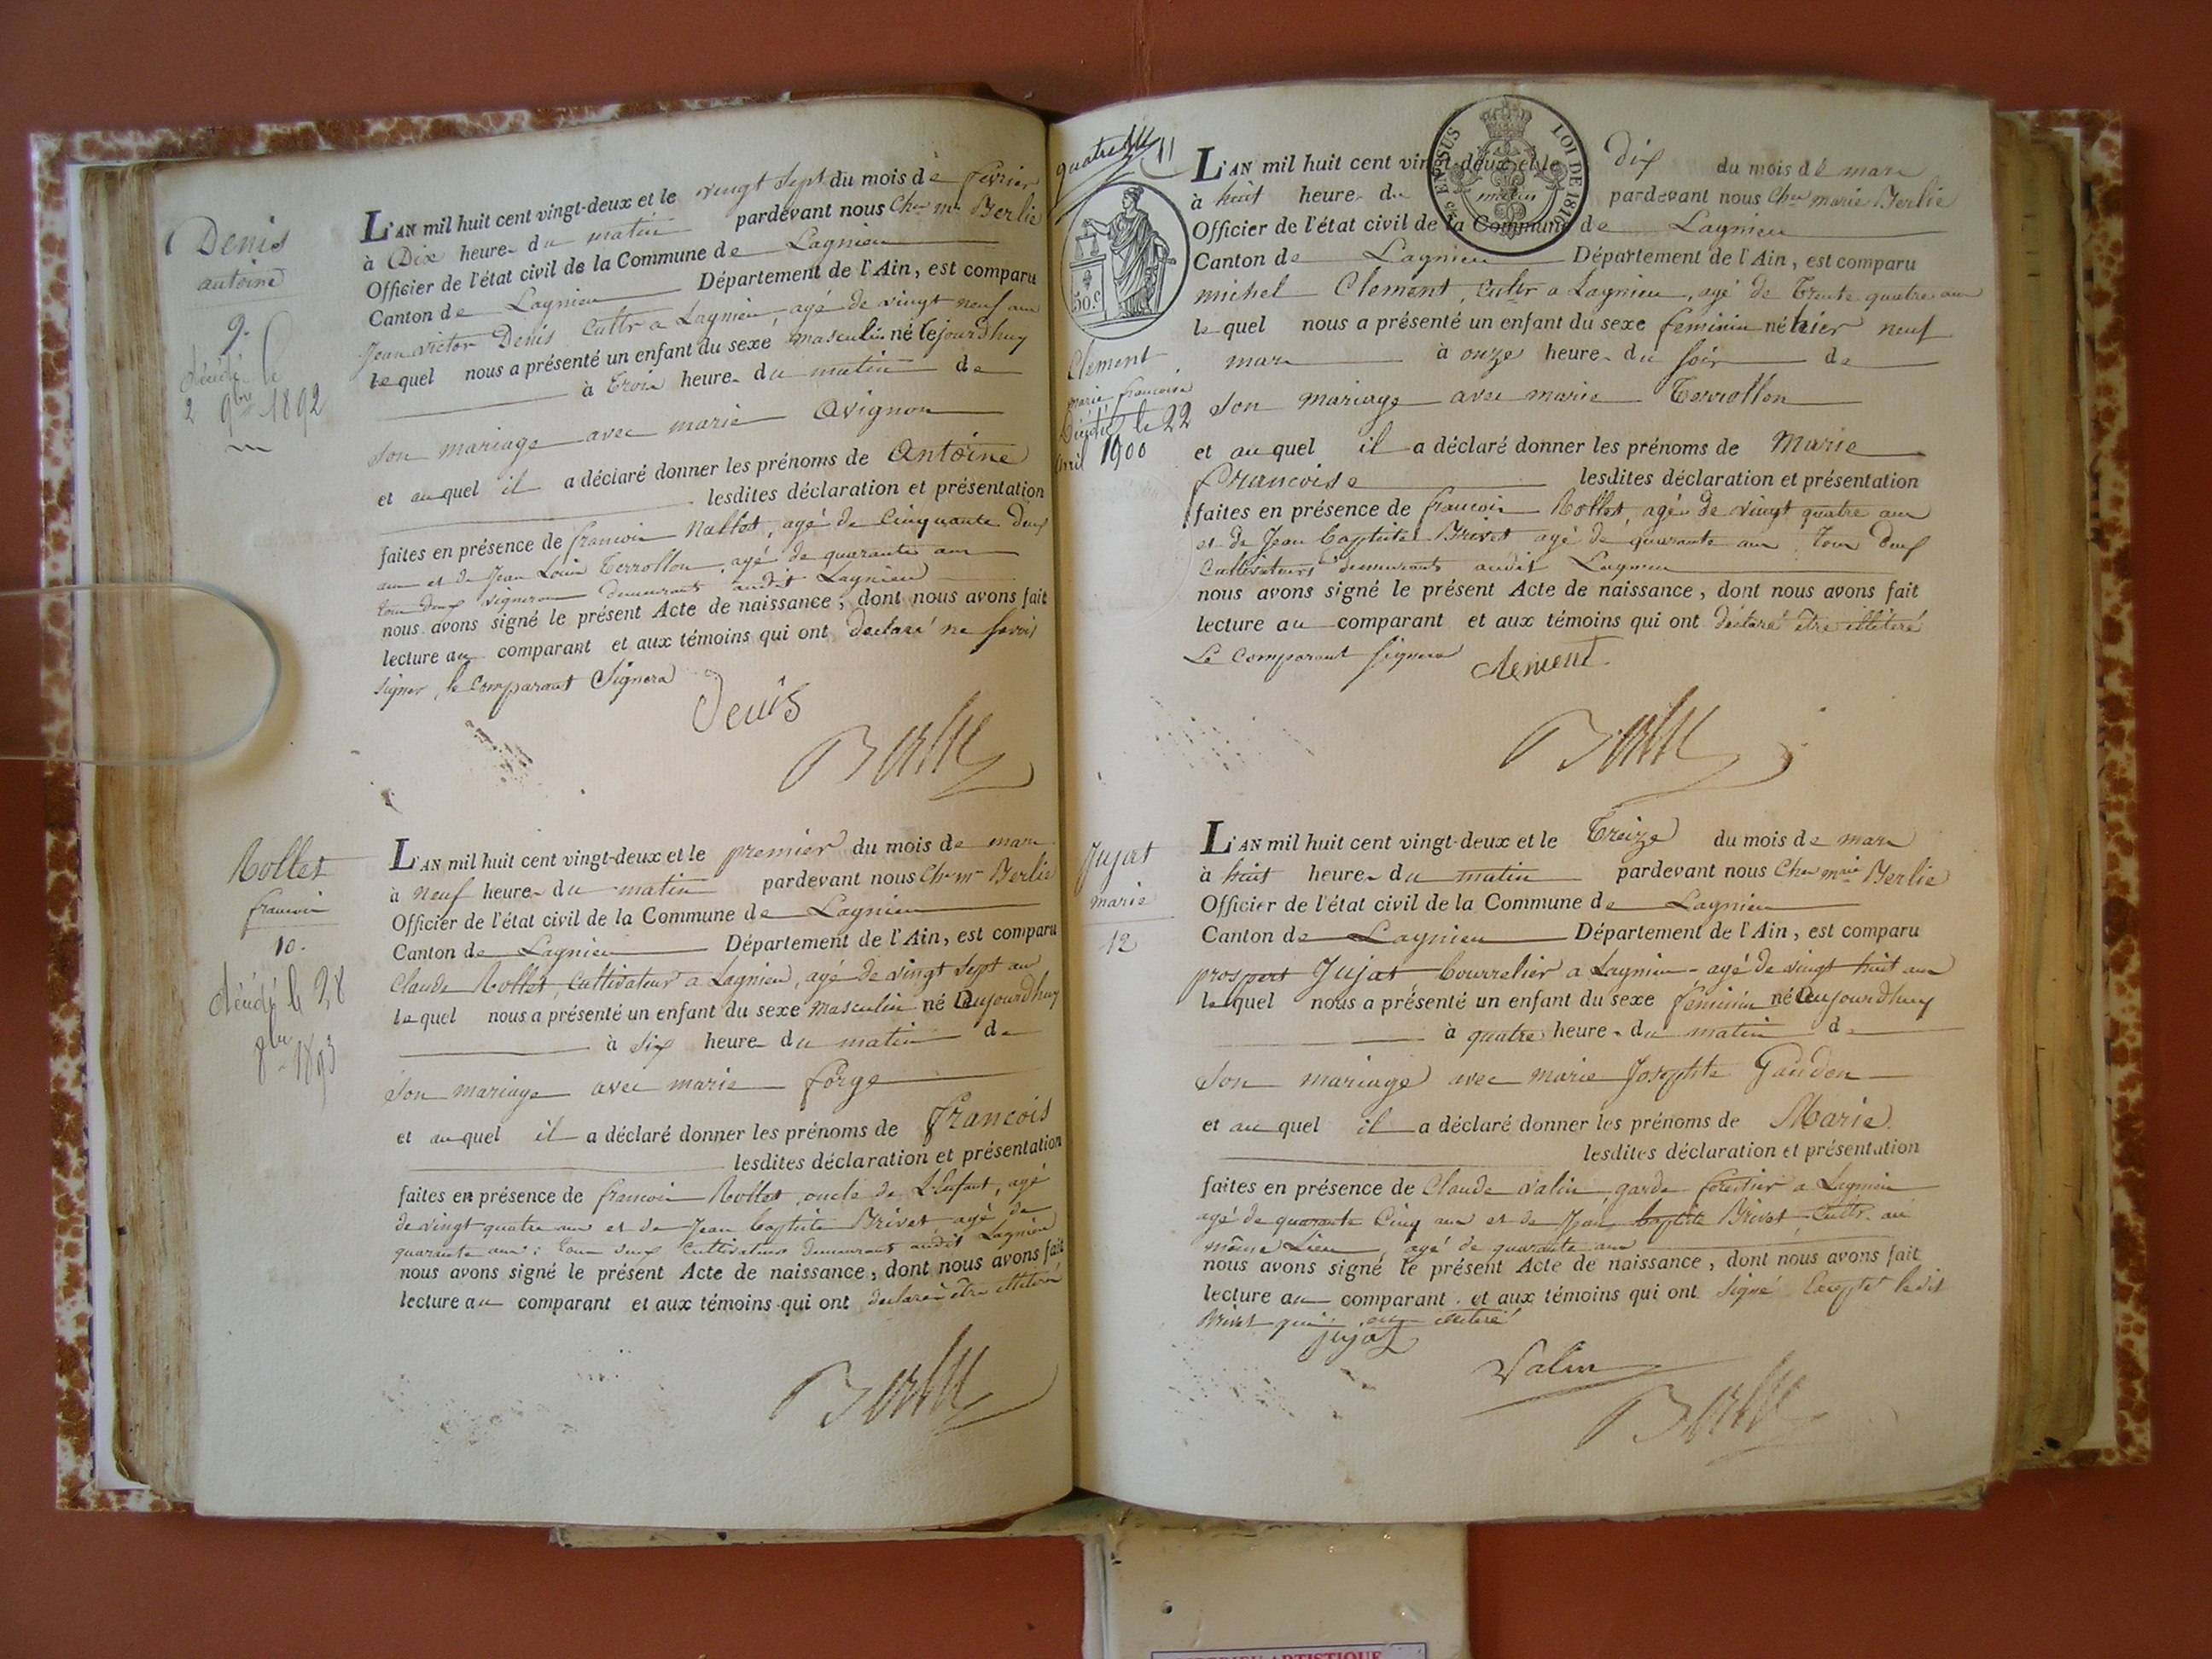 Denis
antoine
9.
décédé le
2 9bre 1892
L'AN mil huit cent vingt-deux et le vingt sept du mois de fevrier
à Dix heure du matin pardevant nous Cher mie Berlie
Officier de l'état civil de la Commune de Lagnieu
Canton de Lagnieu Département de l'Ain, est comparu
Jean victor Denis Cultr a Lagnieu, agé de vingt neuf ans
lequel nous a présenté un enfant du sexe masculin né cejourdhuy
à Trois heure du matin de
son mariage avec marie Avignon
et auquel il a déclaré donner les prénoms de Antoine
lesdites déclaration et présentation
faites en présence de francois Nallet, agé de Cinquante deux
ans et de Jean Louis Terrollon, agé de quarante ans
tous deux vignerons demeurants audit Lagnieu
nous avons signé le présent Acte de naissance, dont nous avons fait
lecture au comparant et aux témoins qui ont declaré ne savoir
signer, le Comparant Signera
Denis
Berlie
Rollet
francois
10.
décédé le 28
8bre 1893
L'AN mil huit cent vingt-deux et le premier du mois de mars
à neuf heure du matin pardevant nous Cher mie Berlie
Officier de l'état civil de la Commune de Lagnieu
Canton de Lagnieu Département de l'Ain, est comparu
Claude Rollet, Cultivateur a Lagnieu, agé de vingt sept ans
lequel nous a présenté un enfant du sexe Masculin né Aujourdhuy
à six heure du matin de
son mariage avec marie forge
et auquel il a déclaré donner les prénoms de francois
lesdites déclaration et présentation
faites en présence de francois Rollet, oncle de L'Enfant, agé
de vingt quatre ans et de Jean baptiste Brivet agé de
quarante ans; tous deux Cultivateurs demeurants audit Lagnieu
nous avons signé le présent Acte de naissance, dont nous avons fait
lecture au comparant et aux témoins qui ont declaré être illitéré
Berlie
quatre
11
CENSUS LOI DE 1816
50.c
Clement
marie francoise
Décédée le 22
avril 1900
L'AN mil huit cent vingt-deux et le Dix du mois de mars
à huit heure du matin pardevant nous Cher marie Berlie
Officier de l'état civil de la Commune de Lagnieu
Canton de Lagnieu Département de l'Ain, est comparu
michel Clement, Cultr a Lagnieu, agé de Trente quatre ans
lequel nous a présenté un enfant du sexe feminin né hier neuf
mars à onze heure du soir de
son mariage avec marie Terrollon
et auquel il a déclaré donner les prénoms de Marie
francoise lesdites déclaration et présentation
faites en présence de francois Rollet, agé de vingt quatre ans
et de Jean baptiste Brivet agé de quarante ans tous deux
Cultivateurs demeurants audit Lagnieu
nous avons signé le présent Acte de naissance, dont nous avons fait
lecture au comparant et aux témoins qui ont declaré être illitéré
Le Comparant signera
Clement
Berlie
Jujat
marie
12
L'AN mil huit cent vingt-deux et le Treize du mois de mars
à huit heure du matin pardevant nous Cher marie Berlie
Officier de l'état civil de la Commune de Lagnieu
Canton de Lagnieu Département de l'Ain, est comparu
prospert Jujat bourrelier a Lagnieu agé de vingt huit ans
lequel nous a présenté un enfant du sexe féminin né Aujourdhuy
à quatre heure du matin de
son mariage avec marie Josephte Gaudon
et auquel il a déclaré donner les prénoms de Marie
lesdites déclaration et présentation
faites en présence de Claude Valin garde forestier a Lagnieu
agé de quarante Cinq ans et de Jean baptiste Brivet Cultr au
même Lieu, agé de quarante ans
nous avons signé le présent Acte de naissance, dont nous avons fait
lecture au comparant et aux témoins qui ont signé Excepté ledit
Brivet qui est illitéré
jujat
Valin
Berlie
ARTISTIQUE